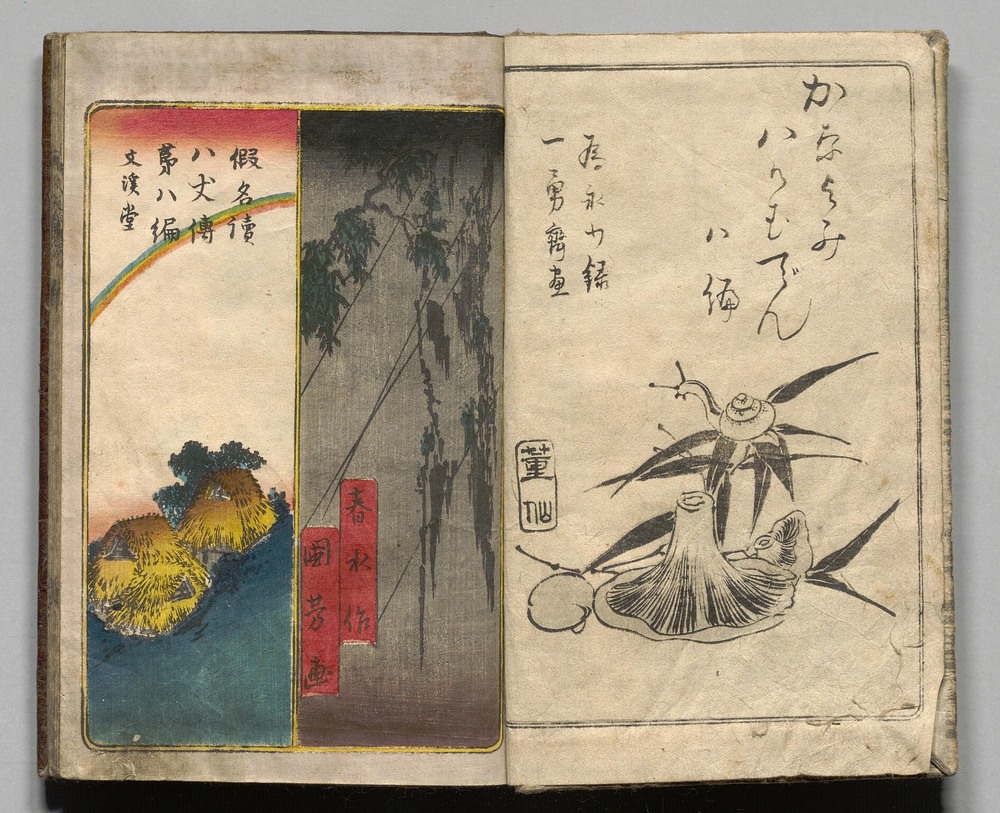 かなよみ
八けむでん
八編
為永抄録
一勇齋画
董仙
春水作
國芳画
假名讀
八犬傳
第八編
文溪堂